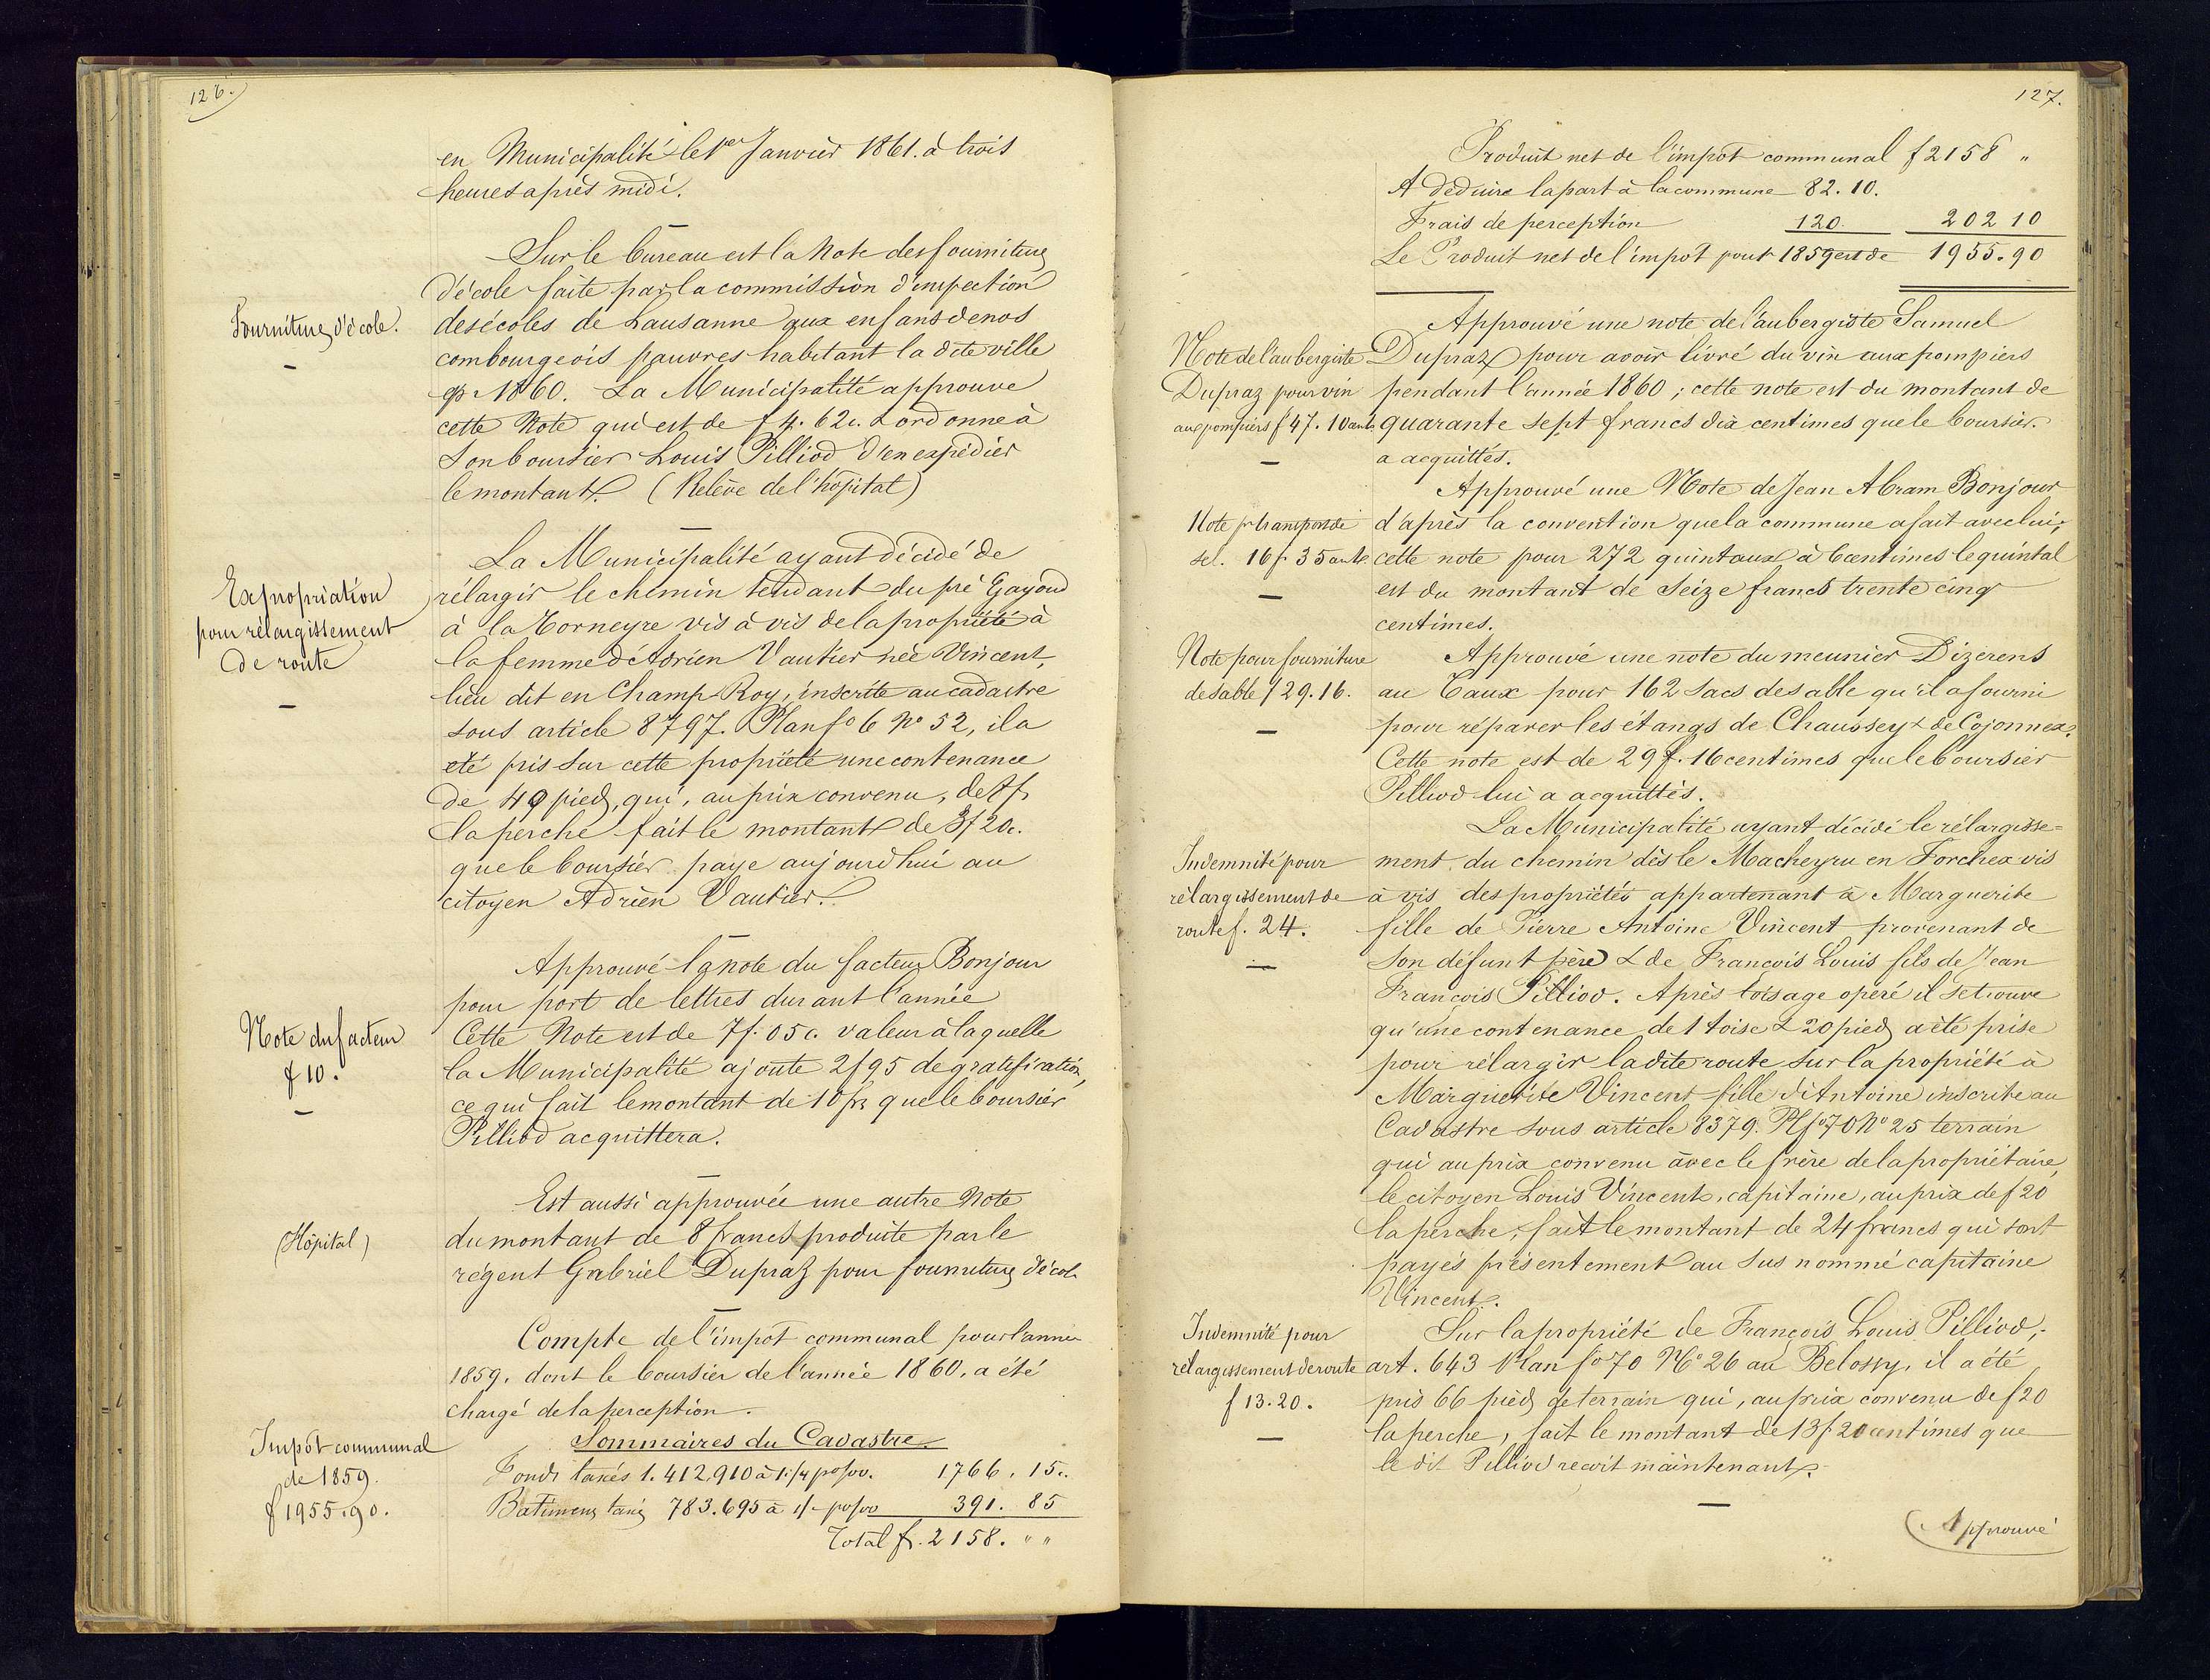 126.
en Municipalité le 1er Janvier 1861. à trois
heures après midi.
Sur le bureau est la Note des fournitures
Fournitures d'école.
d'école faite par la commission d'inspection
des écoles de Lausanne aux enfans de nos
combourgeois pauvres habitant la dite ville
pr 1860. La Municipalité approuve
cette Note qui est de f 4. 62c. & ordonne à
son boursier Louis Pilliod d'en expédier
le montant. (Relève de l'hôpital)
Expropriation
pour rélargissement
de route
La Municipalité ayant décidé de
rélargir le chemin tendant du pré Gayoud
à la Torneyre vis à vis de la propriété à
la femme d'Adrien Vautier née Vincent,
lieu dit en Champ-Roy, inscrite au cadastre
sous article 8797. Plan fo 6 No 52, il a
été pris sur cette propriété une contenance
de 40 pieds, qui, au prix convenu, de 8f
la perche fait le montant de 3f 20c.
que le boursier paye aujourd'hui au
citoyen Adrien Vautier.
Note du facteur
f 10.
Approuvé la note du facteur Bonjour
pour port de lettres durant l'année
Cette Note est de 7f. 05c. valeur à laquelle
la Municipalité ajoute 2f 95 de gratification,
ce qui fait le montant de 10 frs que le boursier
Pilliod acquittera.
(Hôpital)
Est aussi approuvée une autre Note
du montant de 8 francs produite par le
régent Gabriel Dupraz pour fournitures d'école
Compte de l'impôt communal pour l'année
1859. dont le boursier de l'année 1860. a été
chargé de la perception.
Impôt communal
de 1859.
f 1955.90.
Sommaires du Cadastre.
Fonds taxés 1.412,910 à 1 1/4 po/oo. 1766. 15c.
Batimens taxés 783.695 à 1/2 po/oo 391. 85
Total fr. 2158. " "
127.
Produit net de l'impôt communal f 2158 "
A déduire la part à la commune 82. 10.
Frais de perception 120. 202 10
Le Produit net de l'impôt pour 1859 est de 1955.90
Note de l'aubergiste
Dupraz pour vin
aux pompiers f 47. 10 cents
Approuvé une note de l'aubergiste Samuel
Dupraz pour avoir livré du vin aux pompiers
pendant l'année 1860; cette note est du montant de
quarante sept francs dix centimes que le boursier
a acquittés.
Note pr transport de
sel. 16f. 35 cent.
Approuvé une Note de Jean Abram Bonjour
d'après la convention que la commune a fait avec lui;
cette note pour 272 quintaux à 6 centimes le quintal
est du montant de seize francs trente cinq
centimes.
Note pour fourniture
de sable f 29.16.
Approuvé une note du meunier Dizerens
au Taux pour 162 sacs de sable qu'il a fourni
pour réparer les étangs de Chaussey & de Cojonnex.
Cette note est de 29 f. 16 centimes que le boursier
Pilliod lui a acquittés.
Indemnité pour
rélargissement de
route f. 24.
La Municipalité ayant décidé le rélargisse=
ment du chemin dès le Macheyru en Forchex vis
à vis des propriétés appartenant à Marguerite
fille de Pierre Antoine Vincent provenant de
son défunt père & de François Louis fils de Jean
François Pilliod. Après toisage opéré il se trouve
qu'une contenance de 1 toise & 20 pieds a été prise
pour rélargir la dite route sur la propriété à
Marguerite Vincent fille d'Antoine inscrite au
Cadastre sous article 8379. Pl fo 70 No 25 terrain
qui au prix convenu avec le frère de la propriétaire,
le citoyen Louis Vincent, capitaine, au prix de f 20
la perche, fait le montant de 24 francs qui sont
payés présentement au sus nommé capitaine
Vincent.
Indemnité pour
rélargissement de route
f 13.20.
Sur la propriété de François Louis Pilliod,
art. 643 Plan fo 70 No 26 au Belossy, il a été
pris 66 pieds de terrain qui, au prix convenu de f 20
la perche, fait le montant de 13f. 20 centimes que
le dit Pilliod reçoit maintenant.
Approuvé